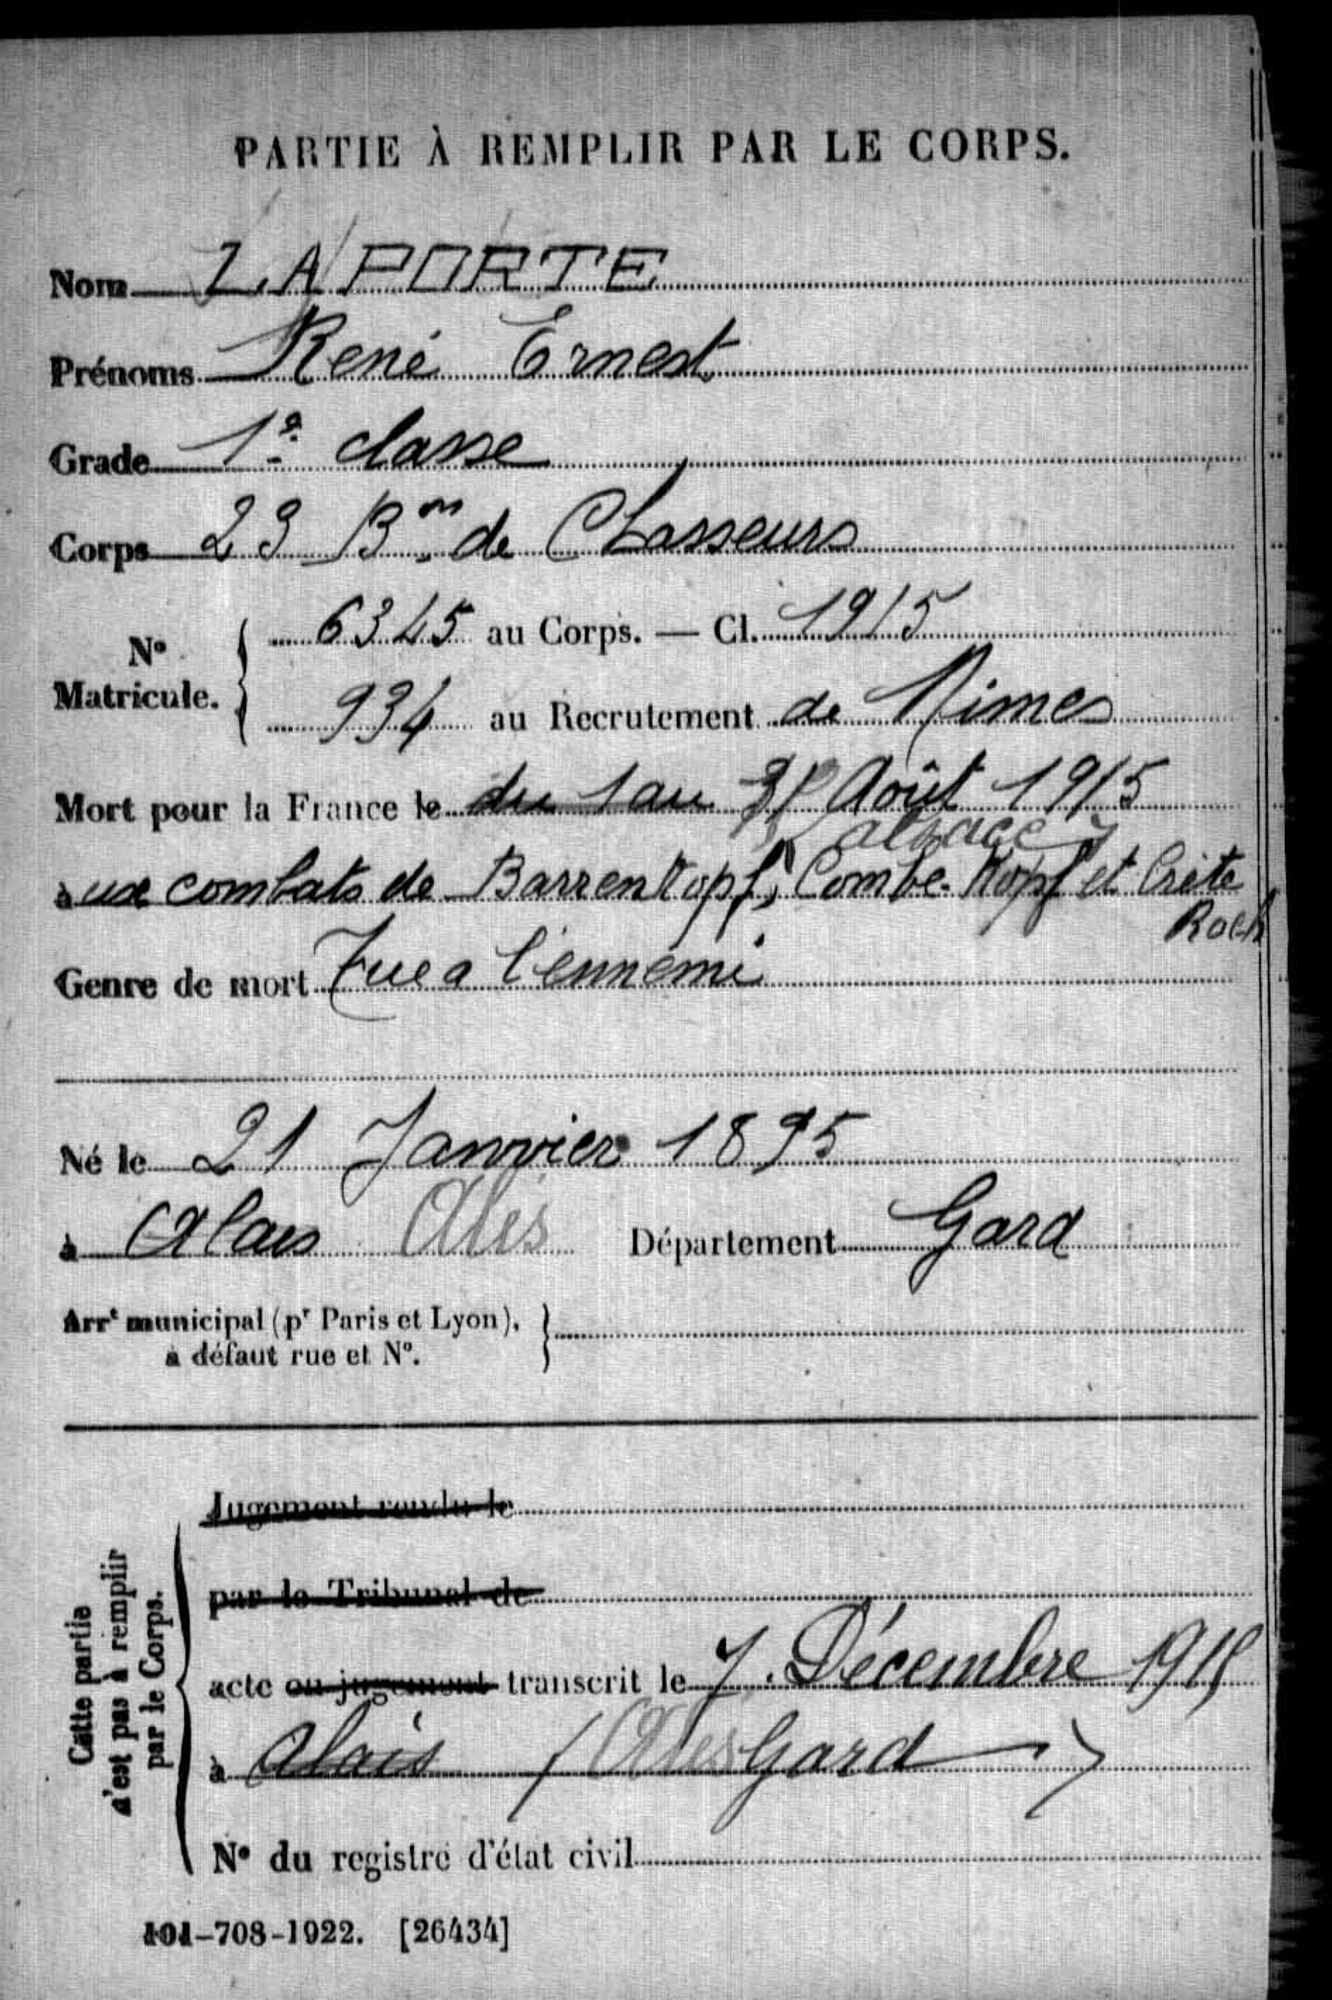 PARTIE À REMPLIR PAR LE CORPS.
Nom LAPORTE
Prénoms René Ernest
Grade 1e classe
Corps 23 Bon de Chasseurs
No Matricule. { 6345 au Corps. — Cl. 1915
934 au Recrutement de Nimes
Mort pour la France le du 1 au 31 Août 1915
alsace
aux combats de Barrenkopf, Combe-Kopf et Crête
Roch
Genre de mort Tue a l'ennemi
Né le 21 Janvier 1895
à Alais Alès Département Gard
Arrt municipal (pr Paris et Lyon), }
à défaut rue et No.
Cette partie
n'est pas à remplir
par le Corps.
Jugement rendu le
par le Tribunal de
acte ou jugement transcrit le 7. Décembre 1915
à Alais (Alès Gard)
No du registre d'état civil
101-708-1922. [26434]